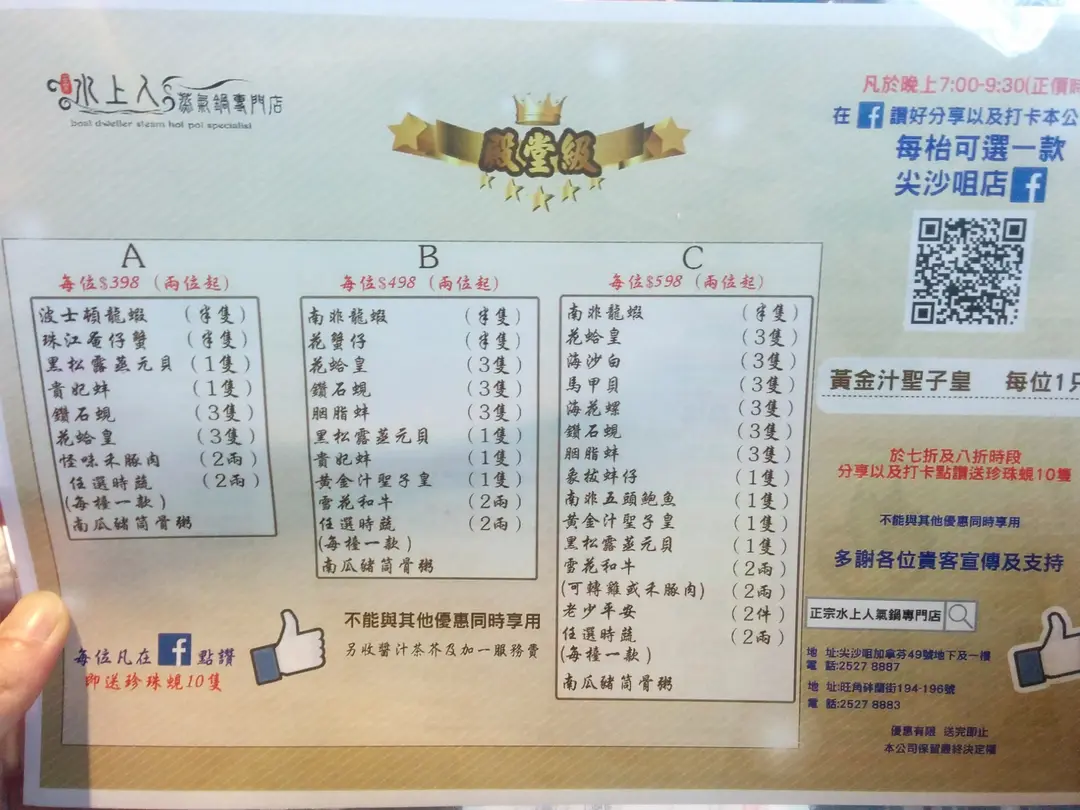 水上人
蒸氣鍋專門店
boat dweller steam hot pot specialist
殿堂級
A
每位$398 (兩位起)
波士頓龍蝦 (半隻)
珠江奄仔蟹 (半隻)
黑松露蒸元貝 (1隻)
貴妃蚌 (1隻)
鑽石蜆 (3隻)
花蛤皇 (3隻)
怪味禾豚肉 (2兩)
任選時蔬 (2兩)
(每檯一款)
南瓜豬筒骨粥
B
每位$498 (兩位起)
南非龍蝦 (半隻)
花蟹仔 (半隻)
花蛤皇 (3隻)
鑽石蜆 (3隻)
胭脂蚌 (3隻)
黑松露蒸元貝 (1隻)
貴妃蚌 (1隻)
黃金汁聖子皇 (1隻)
雪花和牛 (2兩)
任選時蔬 (2兩)
(每檯一款)
南瓜豬筒骨粥
C
每位$598 (兩位起)
南非龍蝦 (半隻)
花蛤皇 (3隻)
海沙白 (3隻)
馬甲貝 (3隻)
海花螺 (3隻)
鑽石蜆 (3隻)
胭脂蚌 (3隻)
象拔蚌仔 (1隻)
南非五頭鮑魚 (1隻)
黃金汁聖子皇 (1隻)
黑松露蒸元貝 (1隻)
雪花和牛 (2兩)
(可轉雞或禾豚肉) (2兩)
老少平安 (2件)
任選時蔬 (2兩)
(每檯一款)
南瓜豬筒骨粥
每位凡在 f 點讚
即送珍珠蜆10隻
不能與其他優惠同時享用
另收醬汁茶芥及加一服務費
凡於晚上7:00-9:30(正價時
在 f 讚好分享以及打卡本公
每枱可選一款
尖沙咀店 f
黃金汁聖子皇 每位1只
於七折及八折時段
分享以及打卡點讚送珍珠蜆10隻
不能與其他優惠同時享用
多謝各位貴客宣傳及支持
正宗水上人氣鍋專門店
地 址:尖沙咀加拿芬49號地下及一樓
電 話:2527 8887
地 址:旺角砵蘭街194-196號
電 話:2527 8883
優惠有限 送完即止
本公司保留最終決定權